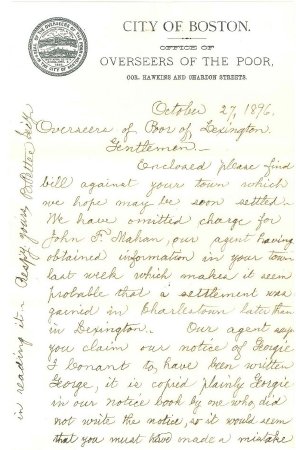 CITY OF BOSTON.
OFFICE OF
OVERSEERS OF THE POOR,
COR. HAWKINS AND CHARDON STREETS.
October 27, 1896.
Overseers of Poor of Lexington
Gentlemen—
Enclosed please find
bill against your town which
we hope may be soon settled.
We have omitted charge for
John F. Mahan, our agent having
obtained information in your town
last week which makes it seem
probable that a settlement was
gained in Charlestown later than
in Lexington. Our agent says
you claim our notice of Georgie
I Conant to have been written
George, it is copied plainly Georgie
in our notice book by one who did
not write the notice, so it would seem
that you must have made a mistake
in reading it. Respy yours,